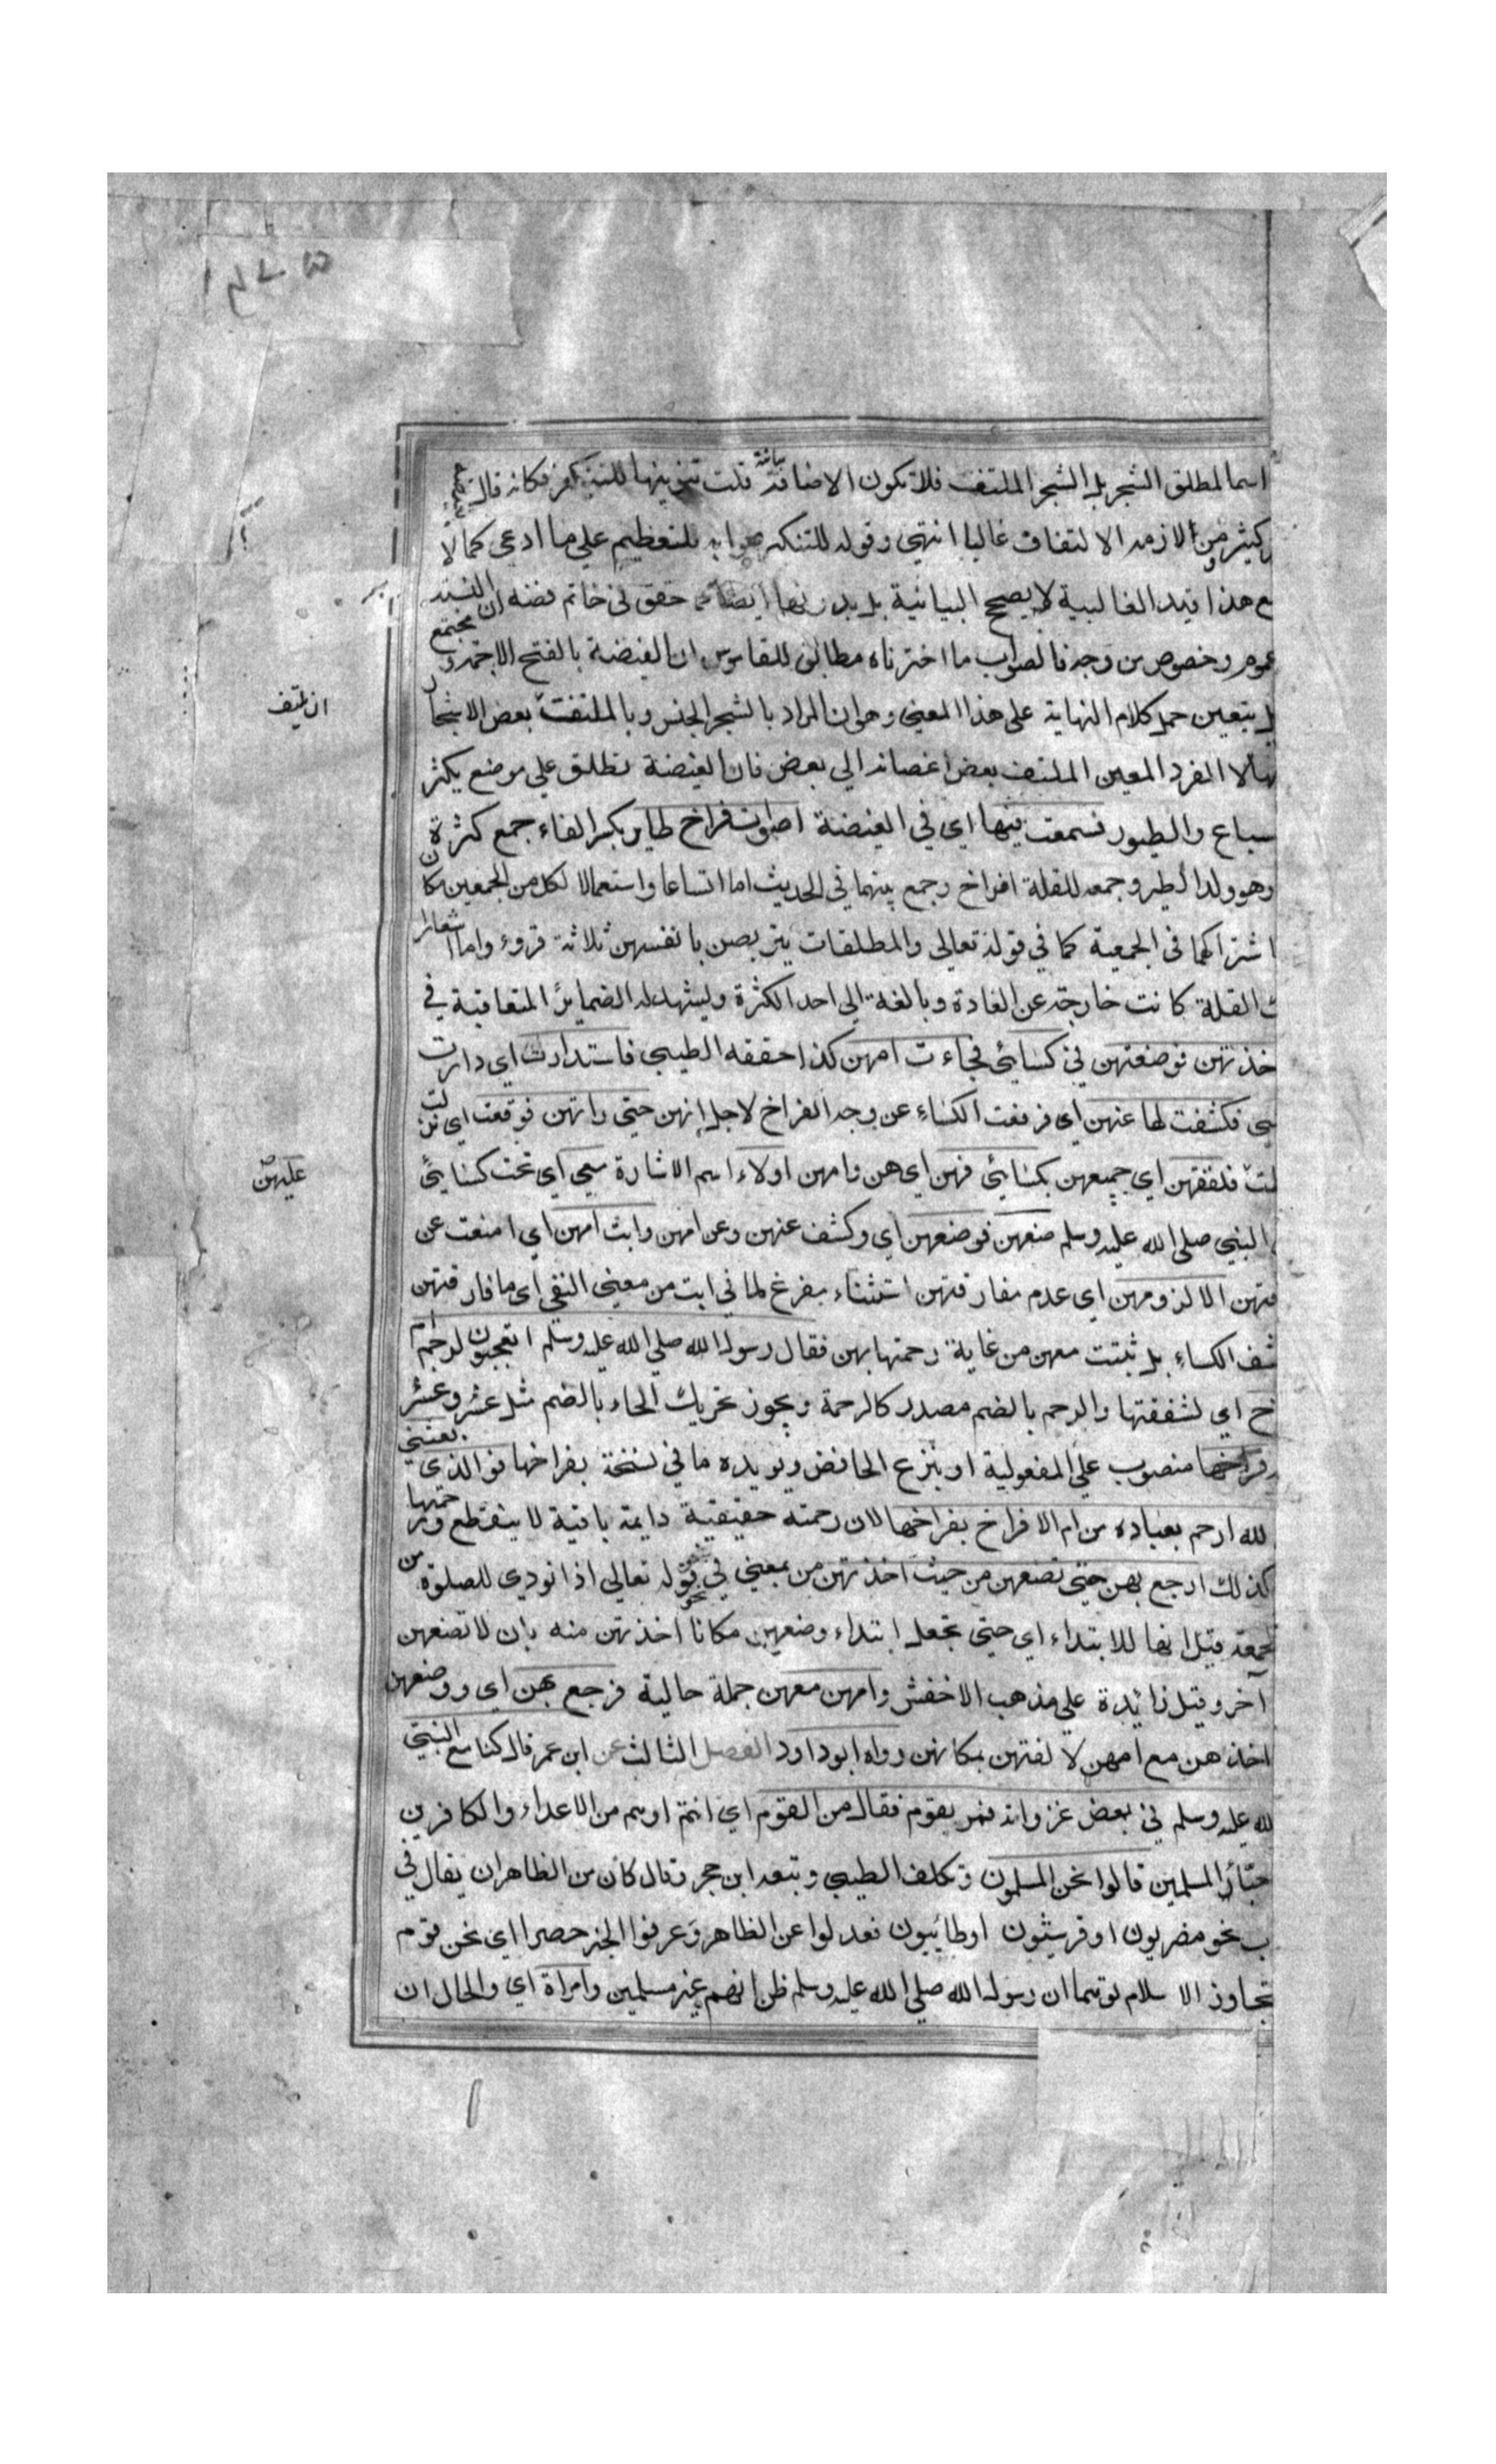 اسما لمطلق الشجر بل الشجر الملتف فلا تكون الاضافة بيانية قلت تنوينها للتنكير فكانه قال
كثير ومن لازمه الالتفاف غالبا انتهى وقوله للتنكير صوابه للتعظيم على ما ادعى كما لا
مع هذا قيد الغالبية لا يصح البيانية بل بدونها ايضا كما حقق في خاتم فضة ان النسبة
عموم وخصوص من وجه فالصواب ما اخترناه مطابق للقاموس ان الغيضة بالفتح الاجمة ومجتمع
بل يتعين حمل كلام النهاية على هذا المعنى وهو ان المراد بالشجر الجنس وبالملتفت بعض الاشجار
لا المفرد المعين الملتف بعض اغصانه الى بعض فان الغيضة تطلق على موضع يكثر
سباع والطيور فسمعت فيها اي في الغيضة اصوات فراخ طاير بكسر الفاء جمع كثرة
وهو ولد الطير وجمعه للقلة افراخ وجمع بينهما في الحديث اما اتساعا واستعمالا لكل من الجمعين مكان
اشتراكهما في الجمعية كما في قوله تعالى والمطلقات يتربصن بانفسهن ثلاثة قروء واما اشعارا
القلة كانت خارجة عن العادة وبالغة الى احد الكثرة ويشهد له الضماير المتعاقبة في
خذتهن فوضعتهن في كسائي فجاءت امهن كذا حققه الطيبي فاستدارت اي دارت
سي فكشفت لها عنهن اي فرفعت الكساء عن وجه الفراخ لاجل انهن حتى راتهن فوقعت اي نزلت
فلففتهن اي جميعهن بكسائي فهن اي هن وامهن اولاء اسم الاشارة معي اي تحت كسائي
النبي صلى الله عليه وسلم ضعهن فوضعهن اي وكشف عنهن وعن امهن وابت امهن اي امنعت عن
قتهن الا لزومهن اي عدم مفارقتهن استثناء مفرغ لما في ابت من معنى النفي اي ما فارقتهن
شف الكساء بل ثبتت معهن من غاية رحمتها بهن فقال رسول الله صلى الله عليه وسلم اتعجبون لرحم ام
خ اي لشفقتها والرحم بالضم مصدر كالرحمة ويجوز تحريك الحاء بالضم مثل عشر وعشر
فراخها منصوب على المفعولية او بنزع الخافض ويويده ما في نسخة بفراخها فوالذي بعثني
لله ارحم بعباده من ام الافراخ بفراخها لان رحمته حقيقية دايمة باقية لا ينقطع ورحمتها
كذلك ارجع بهن حتى تضعهن من حيث اخذتهن من بمعنى في نحو قوله تعالى اذا نودي للصلوة من
لجمعة قيل انها للابتداء اي حتى تجعل ابتداء وضعهن مكانا اخذتهن منه بان لا تضعهن
آخر وقيل زائدة على مذهب الاخفش وامهن معهن جملة حالية فرجع بهن اي ووضعهن
اخذهن مع امهن لالفتهن بمكانهن رواه ابو داود الفصل الثالث عن ابن عمر قال كنا مع النبي
لله عليه وسلم في بعض غزواته فمر بقوم فقال من القوم اي انتم اوهم من الاعداء والكافرين
المسلمين قالوا نحن المسلمون وتكلف الطيبي وتبعه ابن حجر وقال كان من الظاهر ان يقال في
ب نحو مضريون او قريشيون او طائيون فعدلوا عن الظاهر وعرفوا الخبر حصرا اي نحن قوم
تجاوز الاسلام توهما ان رسول الله صلى الله عليه وسلم ظن انهم غير مسلمين وامراة اي والحال ان
ان لمتف
عليهن